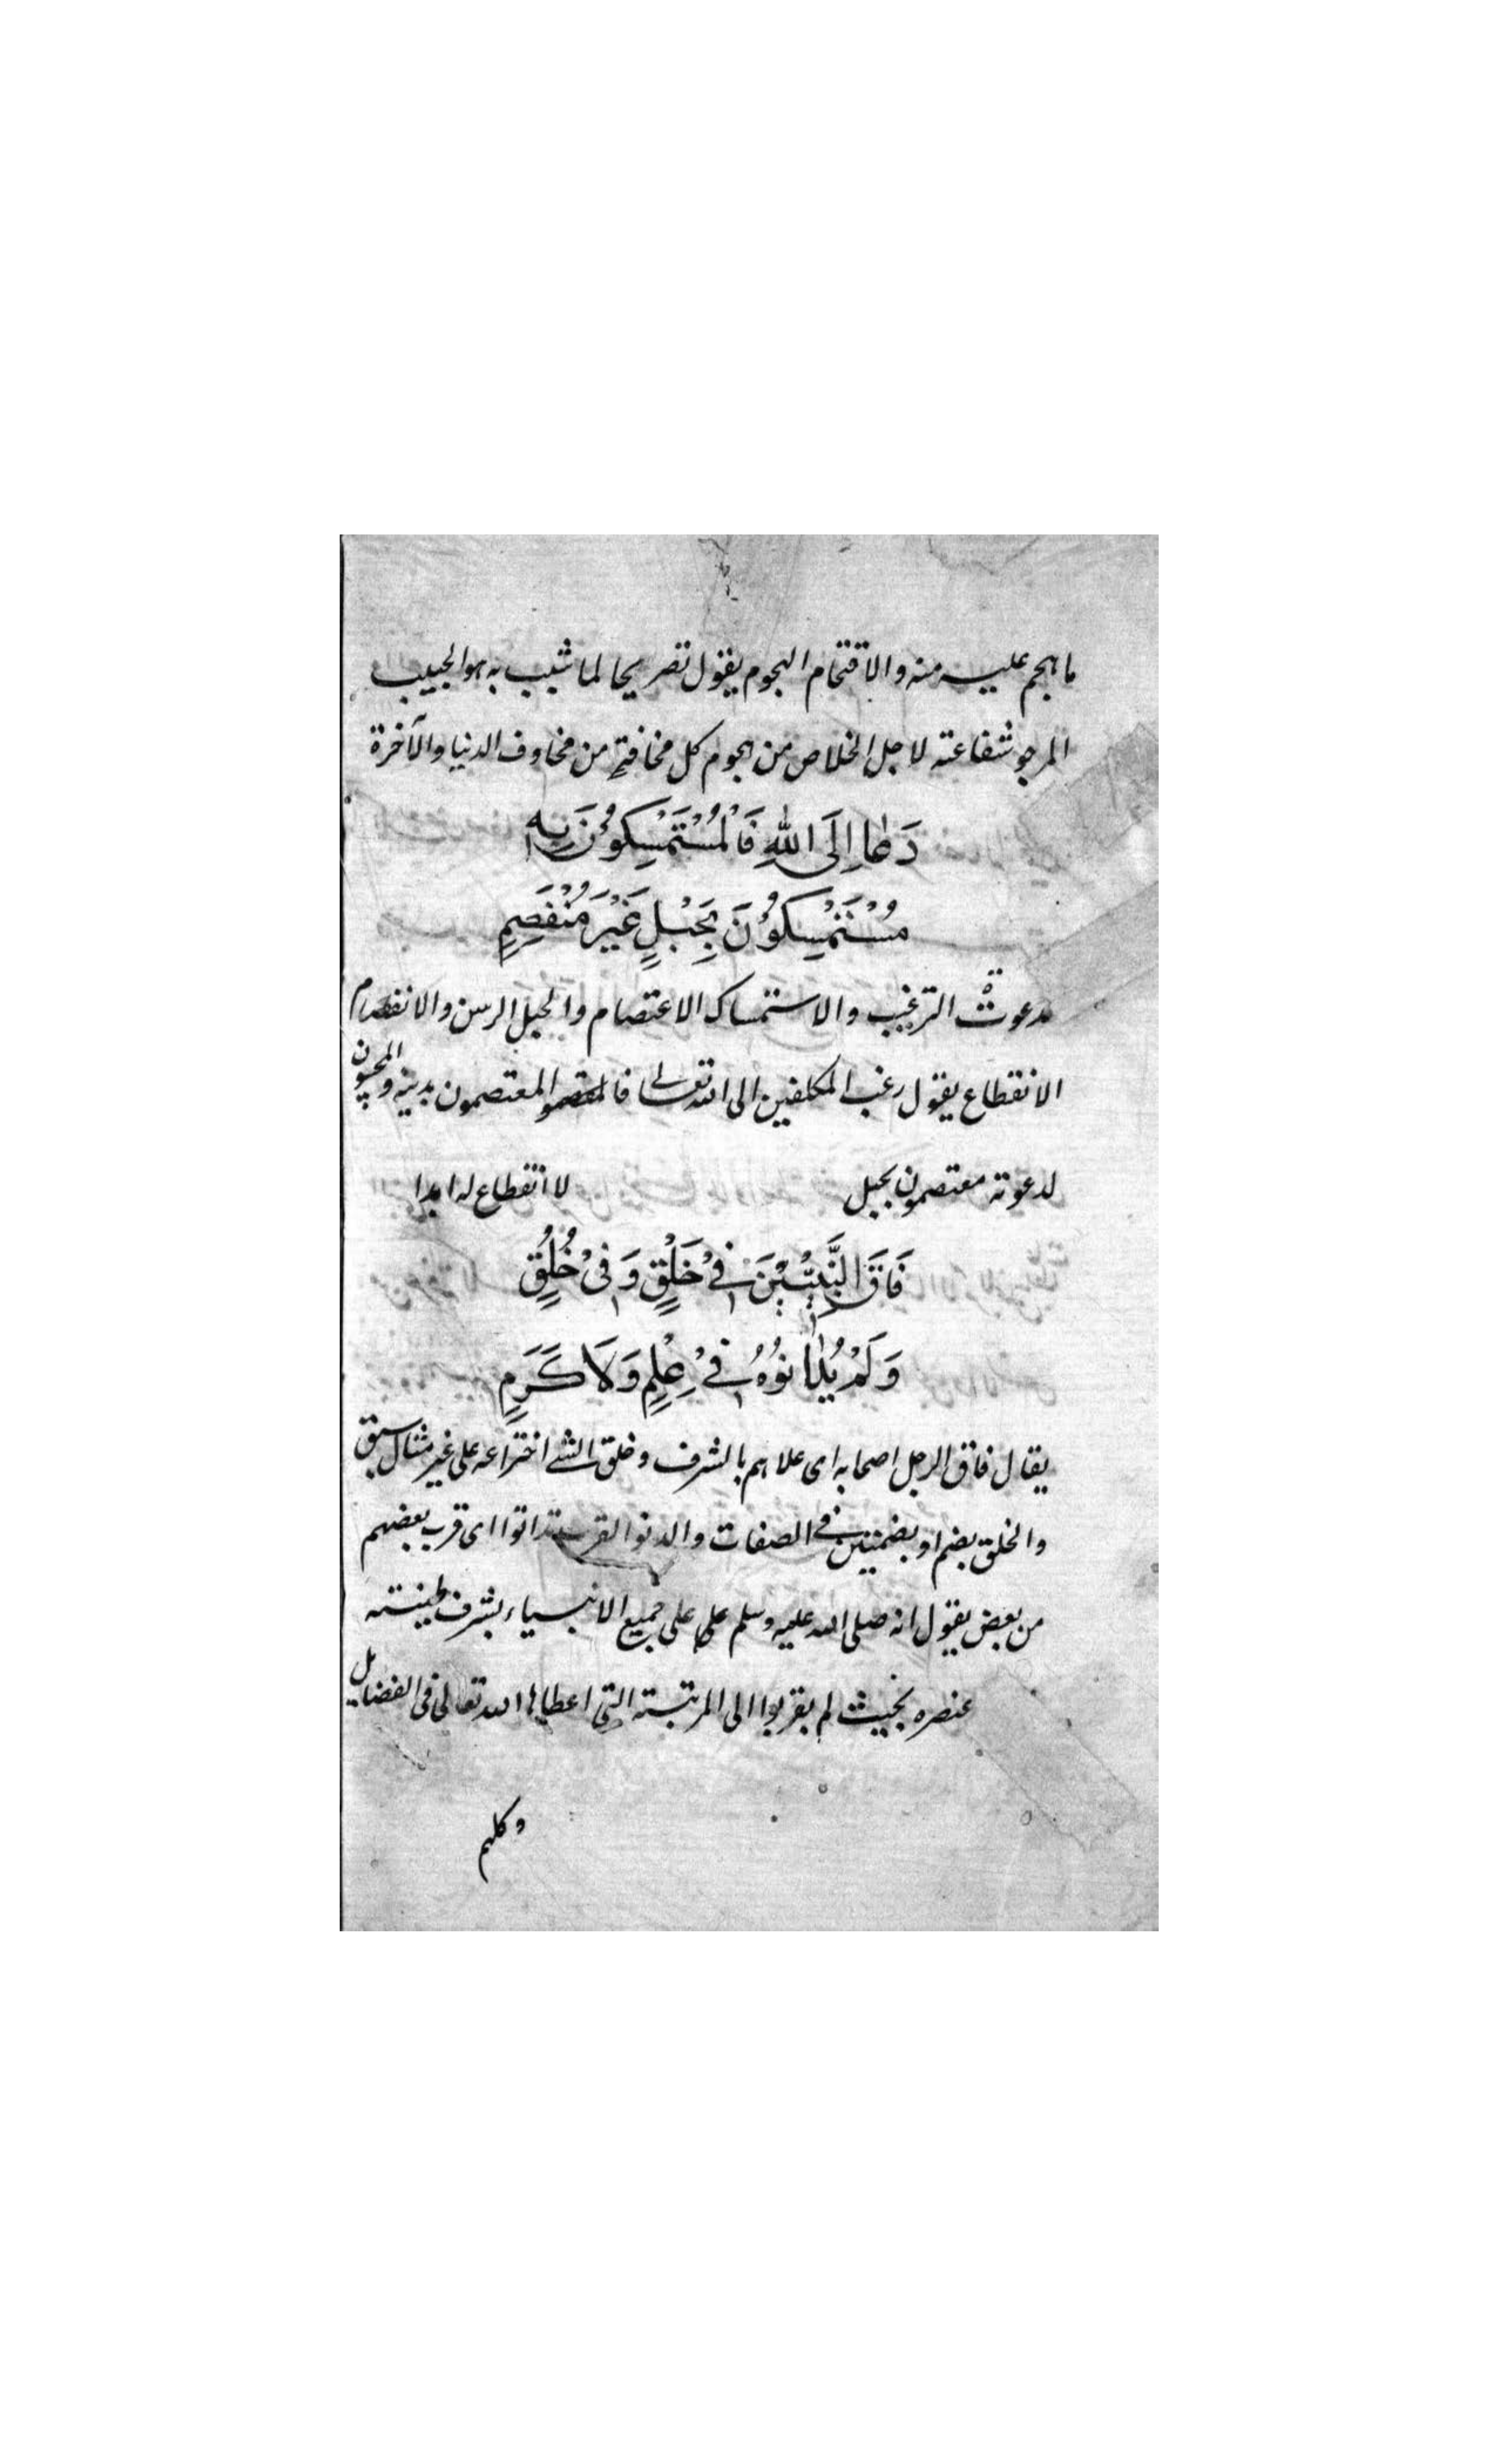 ما هجم عليه منه والاقتحام الهجوم يقول تصريحا لما شبب به هو الحبيب
المرجو شفاعته لاجل الخلاص من هجوم كل مخافة من مخاوف الدنيا والآخرة
دَعَا اِلَى اللّٰهِ فَالْمُسْتَمْسِكُوْنَ بِهٖ
مُسْتَمْسِكُوْنَ بِحَبْلٍ غَيْرَ مُنْفَصِمٍ
الترغيب والاستمساك الاعتصام والحبل الرسن والانفصام
الانقطاع يقول رغب المكلفين الى الله تعالى المعتصمون بدينه والمجيبون
لدعوته معتصمون بحبل لا انقطاع له ابدا
فَاقَ النَّبِيّٖيْنَ فِيْ خَلْقٍ وَفِيْ خُلُقٍ
وَلَمْ يُدَانُوْهُ فِيْ عِلْمٍ وَلَا كَرَمٍ
يقال فاق الرجل اصحابه اى علاهم بالشرف وخلق الشئ اختراعه على غير مثال سبق
والخلق بضم او بضمتين فى الصفات والدنو القرب تدانوا اى قرب بعضهم
من بعض يقول انه صلى الله عليه وسلم على جميع الانبياء بشرف طينته
عنصره بحيث لم يقربوا الى المرتبة التى اعطاها الله تعالى فى الفضايل
وكلهم